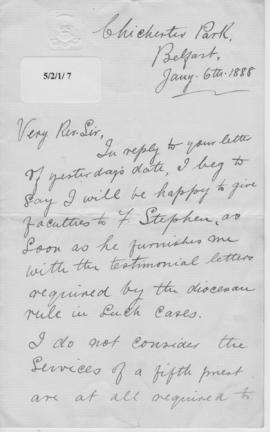 Chichester Park,
Belfast,
Jany. 6th. 1888
5/2/1/ 7
Very Rev. Sir,
In reply to your letter
of yesterday's date, I beg to
say I will be happy to give
faculties to F Stephen, as
soon as he furnishes me
with the testimonial letters
required by the diocesan
rule in such cases.
I do not consider the
services of a fifth priest
are at all required to